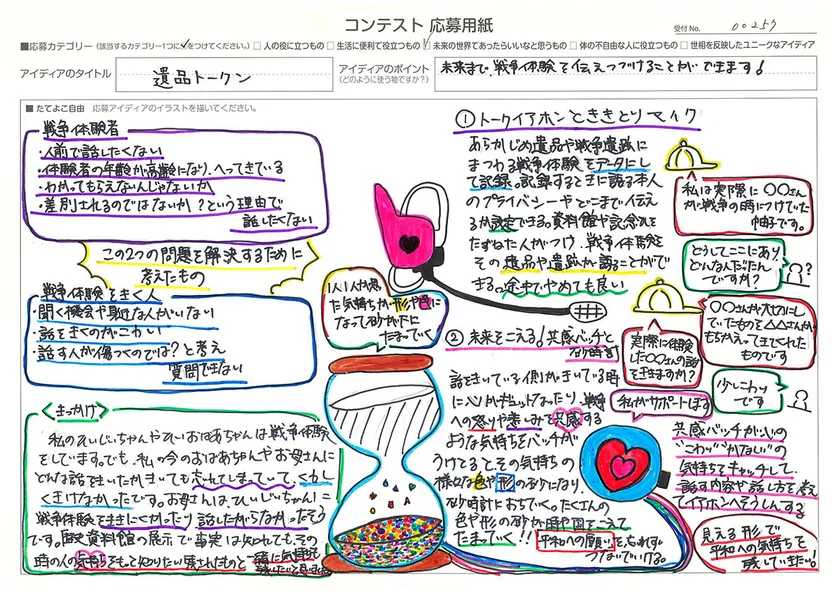 コンテスト 応募用紙
受付No. 00257
■応募カテゴリー (該当するカテゴリー1つに✓をつけてください。) □ 人の役に立つもの □ 生活に便利で役立つもの ☑ 未来の世界であったらいいなと思うもの □ 体の不自由な人に役立つもの □ 世相を反映したユニークなアイディア
アイディアのタイトル
遺品トークン
アイディアのポイント
(どのように使う物ですか?)
未来まで、戦争体験を伝えつづけることができます!
■ たてよこ自由 応募アイディアのイラストを描いてください。
戦争体験者
・人前で話したくない
・体験者の年齢が高齢になり、へってきている
・わかってもらえないんじゃないか
・差別されるのではないか?という理由で
話したくない
この2つの問題を解決するために
考えたもの
戦争体験をきく人
・聞く機会や身近な人がいない
・話をきくのがこわい
・話す人が傷つくのでは?と考え
質問できない
<きっかけ>
私のひいじいちゃんやひいおばあちゃんは戦争体験
をしています。でも、私の今のおばあちゃんやお母さんに
どんな話をきいたかきいても忘れてしまっていて、くわし
くきけなかったです。お母さんはひいじいちゃんに
戦争体験をききにくかったり話したがらなかったそう
です。歴史資料館の展示で事実は知れても、その
時の人の気持ちをもっと知りたい
1人1人が思っ
た気持ちが形や色に
なって砂がたに
たまっていく
① トークイアホンとききとりマイク
あらかじめ遺品や戦争遺跡に
まつわる戦争体験をデータにし
て記録。記録するときに語る本人
のプライバシーやどこまで伝え
るか設定できる。資料館や記念館を
たずねた人がつけ、戦争体験を
その遺品や遺跡が語ることがで
きる。途中でやめても良い
② 未来をこえる!共感バッチと
砂時計
話をきいている側がきいている時
に心がギュッとなったり、戦争
への怒りや悲しみを共感する
ような気持ちをバッチが
うけとるとその気持ちの
様々な色や形の砂になり、
砂時計におちていく。たくさんの
色や形の砂が時や国をこえて
たまっていく!!
平和への願いを忘れず
つないでいける。
私は実際に〇〇さん
が戦争の時につけていた
帽子です。
どうしてここにあり
どんな人だったん
ですか?
〇〇さんが大切にし
ていたものを△△さんが
もちかえってきてくれた
ものです
実際に体験
した〇〇さんの話
をききますか?
少しこわい
です
私がサポートします
共感バッチが心の
"こわい""かなしい"の
気持ちをキャッチして、
話す内容や話し方を考え
てイアホンへそうしんする
見える形で
平和への気持ちを
残していきたい!